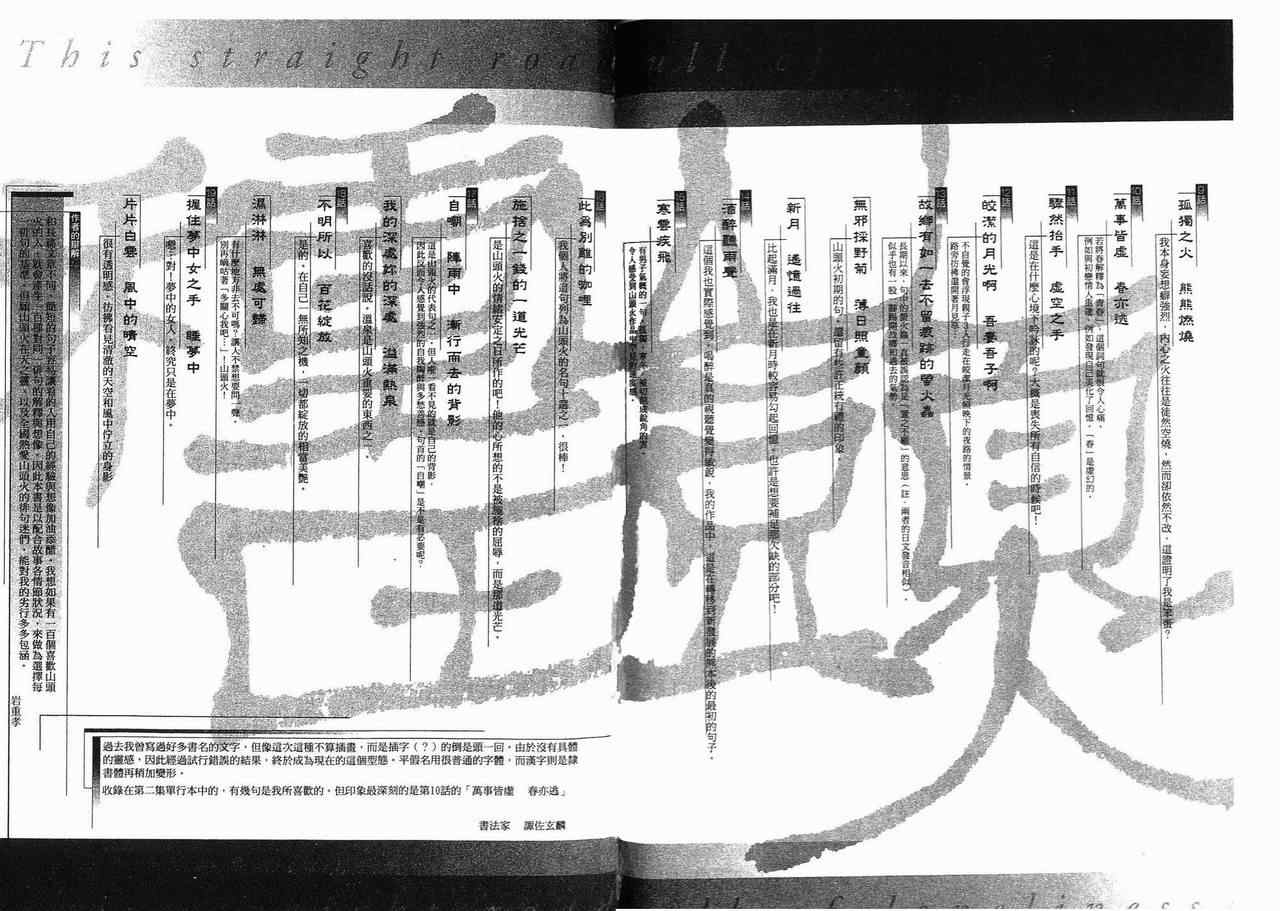 This straight road
9話
孤獨之火 熊熊燃燒
我本身妄想癖強烈，內心之火往往是徒然空燒，然而卻依然不改，這證明了我是本蛋？
10話
萬事皆虛 春亦逃
若將春解釋為「青春」，這個詞句就頗令人心痛，
例如與初戀情人重逢，例如發現自己美化了回憶，「春」是虛幻的。
11話
驟然抬手 虛空之手
這是在什麼心境下吟詠的呢？大概是喪失所有自信的時候吧！
12話
皎潔的月光啊 吾妻吾子啊
不自覺的會浮現親子3人行走在皎潔月光傾晚下的夜路的情景，
路旁彷彿還開著月見草。
13話
故鄉有如一去不留痕跡的螢火蟲
長期以來，句中的螢火蟲一直被誤認為是「置之不顧」的意思（註：兩者的日文發音相似），
似乎也有一股
無邪採野菊 薄日照童顏
山頭火初期的句，還留有較許正統有體的印象。
新月 遙憶過往
比起滿月，我也是在新月時較容易勾起回憶。也許是想要補足那欠缺的部分吧！
14話
酒醉聽雨聲
這個我也實際感覺到，喝醉是真的視聽覺變得敏銳，我的作品中，這是在轉移到新發展的熊本後的最初的句子。
15話
寒雲疾飛
此為別離的咖哩
我個人將這句列為山頭火的名句十選之一，很棒！
施捨之一錢的一道光芒
是山頭火的情緒安定之日所作的吧！他的心所想的不是被施捨的屈辱，而是那道光芒。
自嘲 陣雨中 漸行而去的背影
這是山頭火的代表句之一，但人唯一看不見的就是自己的背影，
因此反而令人感覺到強烈的自我陶醉與多愁善感，句首的「自嘲」是不是有必要呢？
我的深處妳的深處 溢滿熱泉
喜歡的沒話說，溫泉是山頭火重要的東西之一。
18話
不明所以 百花綻放
是的，在自己一無所知之機，一切都綻放的相當美艷。
濕淋淋 無處可歸
有什麼地方非去不可嗎？讓人不禁想要問一聲。
別再嘀咕著「多關心我吧…」山頭火！
19話
握住夢中女之手 睡夢中
懇…對！夢中的女人，終究只是在夢中。
片片白雲 風中的晴空
很有透明感，彷彿看見清澈的天空和風中佇立的身影
作者的理解
和長篇文章不同，簡短的句子容易讓看的人用自己的經驗與想像加油添醋。我想如果有一百個喜歡山頭
火的人，就會產生一百種對同一俳句的解釋與想像，因此本書是以配合故事各情節狀況，來做為選擇每
一句句的基準。但願山頭火在天之靈，以及全國熱愛山頭火的俳句迷們，能對我的劣行多多包涵。
岩重孝
過去我曾寫過好多書名的文字，但像這次這種不算插畫，而是插字（？）的倒是頭一回。由於沒有具體
的靈感，因此經過試行錯誤的結果，終於成為現在的這個型態。平假名用很普通的字體，而漢字則是隸
書體再稍加變形。
收錄在第二集單行本中的，有幾句是我所喜歡的，但印象最深刻的是第10話的「萬事皆虛 春亦逃」
書法家 諏佐玄麟